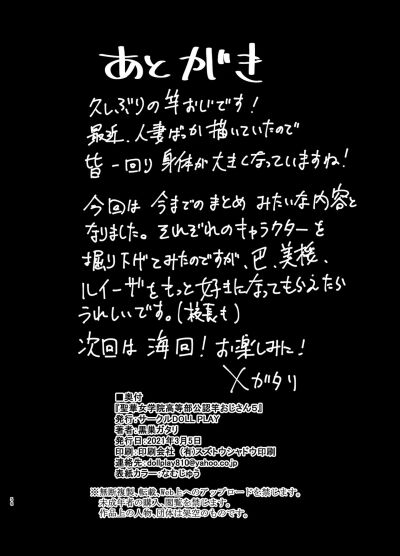 あとがき
久しぶりの竿おじです!
最近、人妻ばっか描いていたので
皆一回り身体が大きくなっていますね!
今回は今までのまとめみたいな内容と
なりました。それぞれのキャラクターを
掘り下げてみたのですが、巴、美樹、
ルイーザをもっと好きになってもらえたら
うれしいです。(校長も)
次回は海回!お楽しみに!
メガタリ
■奥付
『聖華女学院高等部公認竿おじさん5』
発行:サークルDOLL PLAY
著者:黒巣ガタリ
発行日:2021年3月5日
印刷:印刷会社 (有)スズトウシャドウ印刷
連絡先:dollplay810@yahoo.co.jp
表紙カラー:なむじゅう
※無断複製、転載、Web上へのアップロードを禁じます。
未成年者の購入、閲覧を禁じます。
作品上の人物、団体は架空のものです。